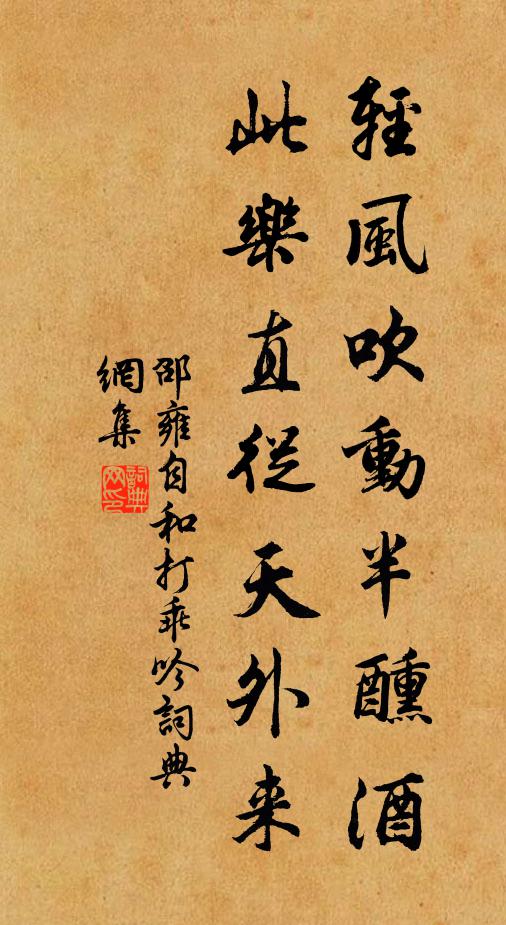 輕風吹動半醺酒
此樂直從天外来
邵雍自和打乖吟詞典
網集
詞典網印